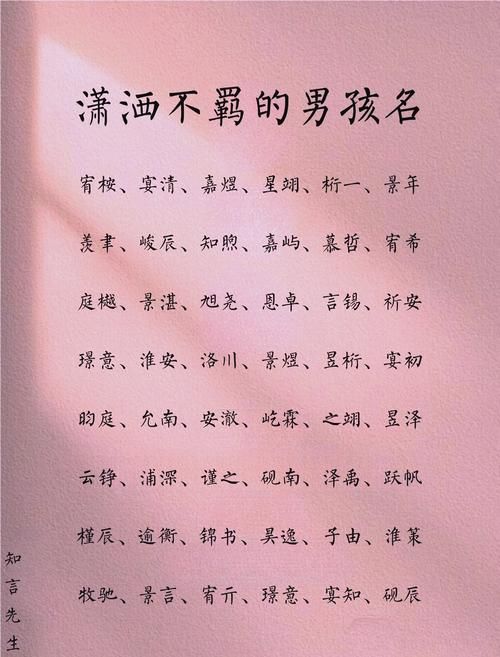 潇洒不羁的男孩名
宥桉、宴清、嘉煜、星翊、桁一、景年
羡聿、峻辰、知煦、嘉屿、慕哲、宥希
庭樾、景湛、旭尧、恩卓、言锡、祈安
璟意、淮安、洛川、景煜、昱桁、宴初
昀庭、允南、安澈、屹霖、之翊、昱泽
云铮、浦深、谨之、砚南、泽禹、跃帆
槿辰、逾衡、锦书、昊逸、子由、淮策
牧驰、景言、宥亓、璟意、宴知、砚辰
知言先生